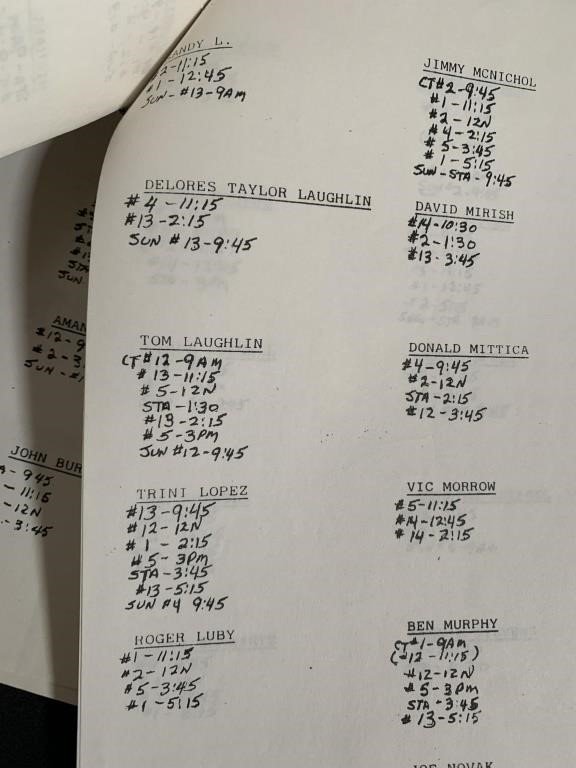 ANDY L.
#2-11:15
#1-12:45
SUN-#13-9AM
DELORES TAYLOR LAUGHLIN
#4-11:15
#13-2:15
SUN #13-9:45
TOM LAUGHLIN
CT#12-9AM
#13-11:15
#5-12N
STA-1:30
#13-2:15
#5-3PM
SUN #12-9:45
TRINI LOPEZ
#13-9:45
#12-12N
#1-2:15
#5-3PM
STA-3:45
#13-5:15
SUN #4 9:45
ROGER LUBY
#1-11:15
#2-12N
#5-3:45
#1-5:15
JIMMY MCNICHOL
CT#2-9:45
#1-11:15
#2-12N
#4-2:15
#5-3:45
#1-5:15
SUN-STA-9:45
DAVID MIRISH
#14-10:30
#2-1:30
#13-3:45
DONALD MITTICA
#4-9:45
#2-12N
STA-2:15
#12-3:45
VIC MORROW
#5-11:15
#14-12:45
#14-2:15
BEN MURPHY
CT#1-9AM
(#12-11:15)
#12-12N
#5-3PM
STA-3:45
#13-5:15
JOE NOVAK
AMAN
#12-9
#2-3
SUN-#1
JOHN BUR
A-945
-11:15
-12N
-3:45